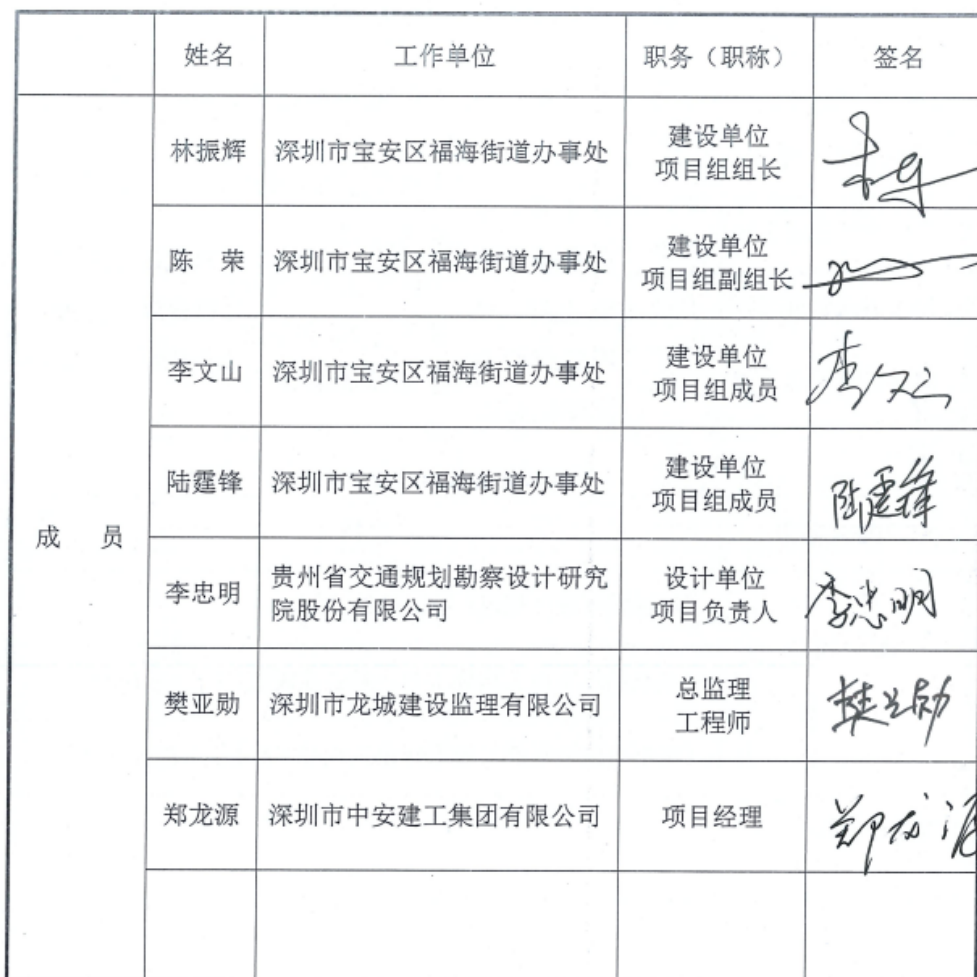 姓名 工作单位 职务（职称） 签名
成 员
林振辉 深圳市宝安区福海街道办事处 建设单位
项目组组长
陈 荣 深圳市宝安区福海街道办事处 建设单位
项目组副组长
李文山 深圳市宝安区福海街道办事处 建设单位
项目组成员 李文山
陆霆锋 深圳市宝安区福海街道办事处 建设单位
项目组成员 陆霆锋
李忠明 贵州省交通规划勘察设计研究
院股份有限公司 设计单位
项目负责人 李忠明
樊亚勋 深圳市龙城建设监理有限公司 总监理
工程师 樊亚勋
郑龙源 深圳市中安建工集团有限公司 项目经理 郑龙源